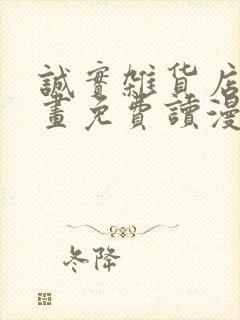 誠實雜貨店
畫免費讀漫
冬降